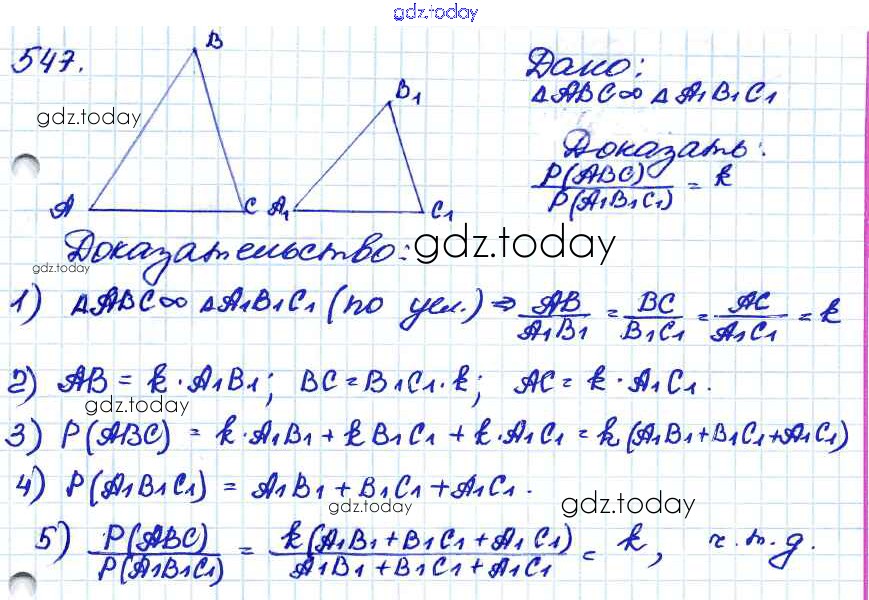 gdz.today
547.
B
B1
A
C
A1
C1
gdz.today
Дано:
∆ABC∞∆A1B1C1
Доказать:
P(ABC)/P(A1B1C1) = k
Доказательство:
gdz.today
gdz.today
1) ∆ABC∞∆A1B1C1 (по усл.) ⇒ AB/A1B1 = BC/B1C1 = AC/A1C1 = k
2) AB = k · A1B1; BC = B1C1 · k; AC = k · A1C1.
gdz.today
3) P(ABC) = k · A1B1 + k B1C1 + k · A1C1 = k (A1B1+B1C1+A1C1)
4) P(A1B1C1) = A1B1 + B1C1 + A1C1.
gdz.today
gdz.today
5) P(ABC)/P(A1B1C1) = k(A1B1 + B1C1 + A1C1)/A1B1 + B1C1 + A1C1 = k, ч.т.д.